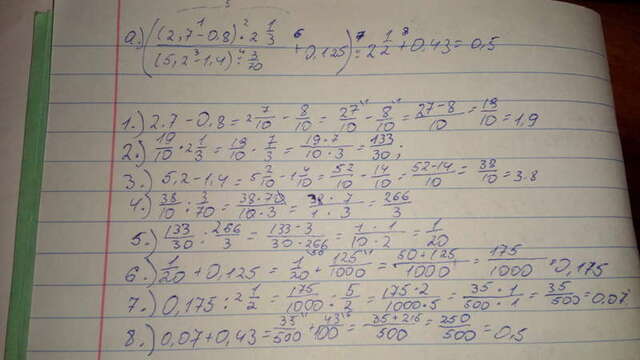 а.) ( (2,7-0,8)·2 1/3 / (5,2-1,4):3/70 + 0,125 ) : 2 1/2 + 0,43 = 0,5
1.) 2.7-0,8 = 2 7/10 - 8/10 = 27/10 - 8/10 = 27-8/10 = 19/10 = 1,9
2.) 19/10 · 2 1/3 = 19/10 · 7/3 = 19·7/10·3 = 133/30;
3.) 5,2-1,4 = 5 2/10 - 1 4/10 = 52/10 - 14/10 = 52-14/10 = 38/10 = 3.8
4.) 38/10 : 3/70 = 38·70/10·3 = 38·7/1·3 = 266/3
5.) 133/30 : 266/3 = 133·3/30·266 = 1·1/10·2 = 1/20
6.) 1/20 + 0,125 = 1/20 + 125/1000 = 50+125/1000 = 175/1000 = 0,175
7.) 0,175 : 2 1/2 = 175/1000 : 5/2 = 175·2/1000·5 = 35·1/500·1 = 35/500 = 0,07
8.) 0,07+0,43 = 35/500 + 43/100 = 35+215/500 = 250/500 = 0,5